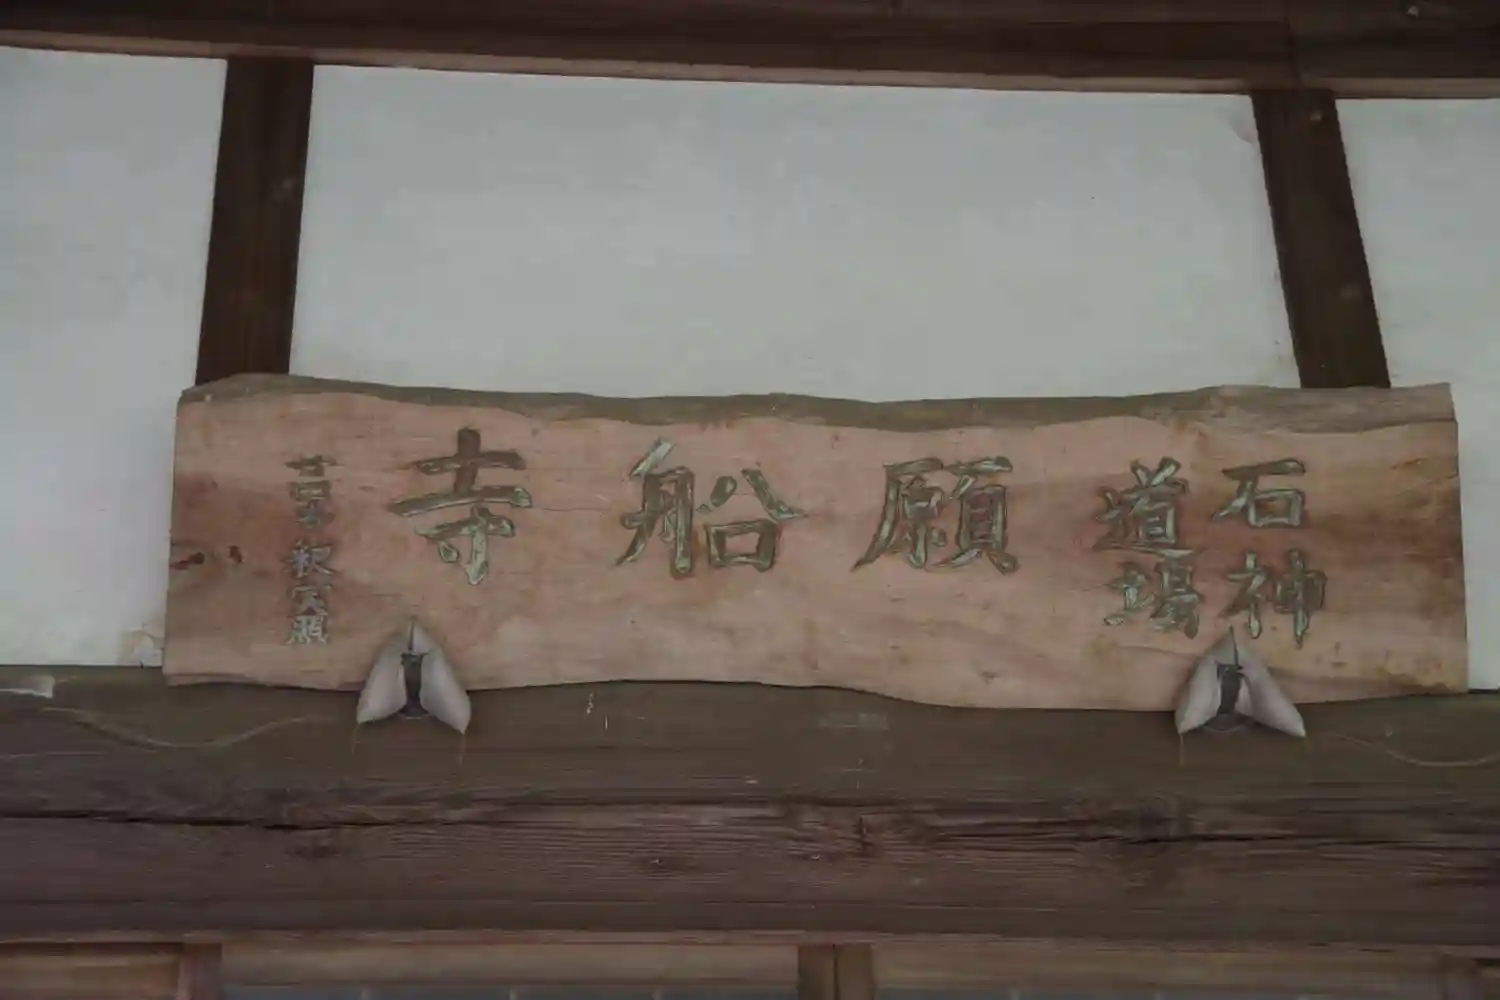 石神
道場
願船寺
釈